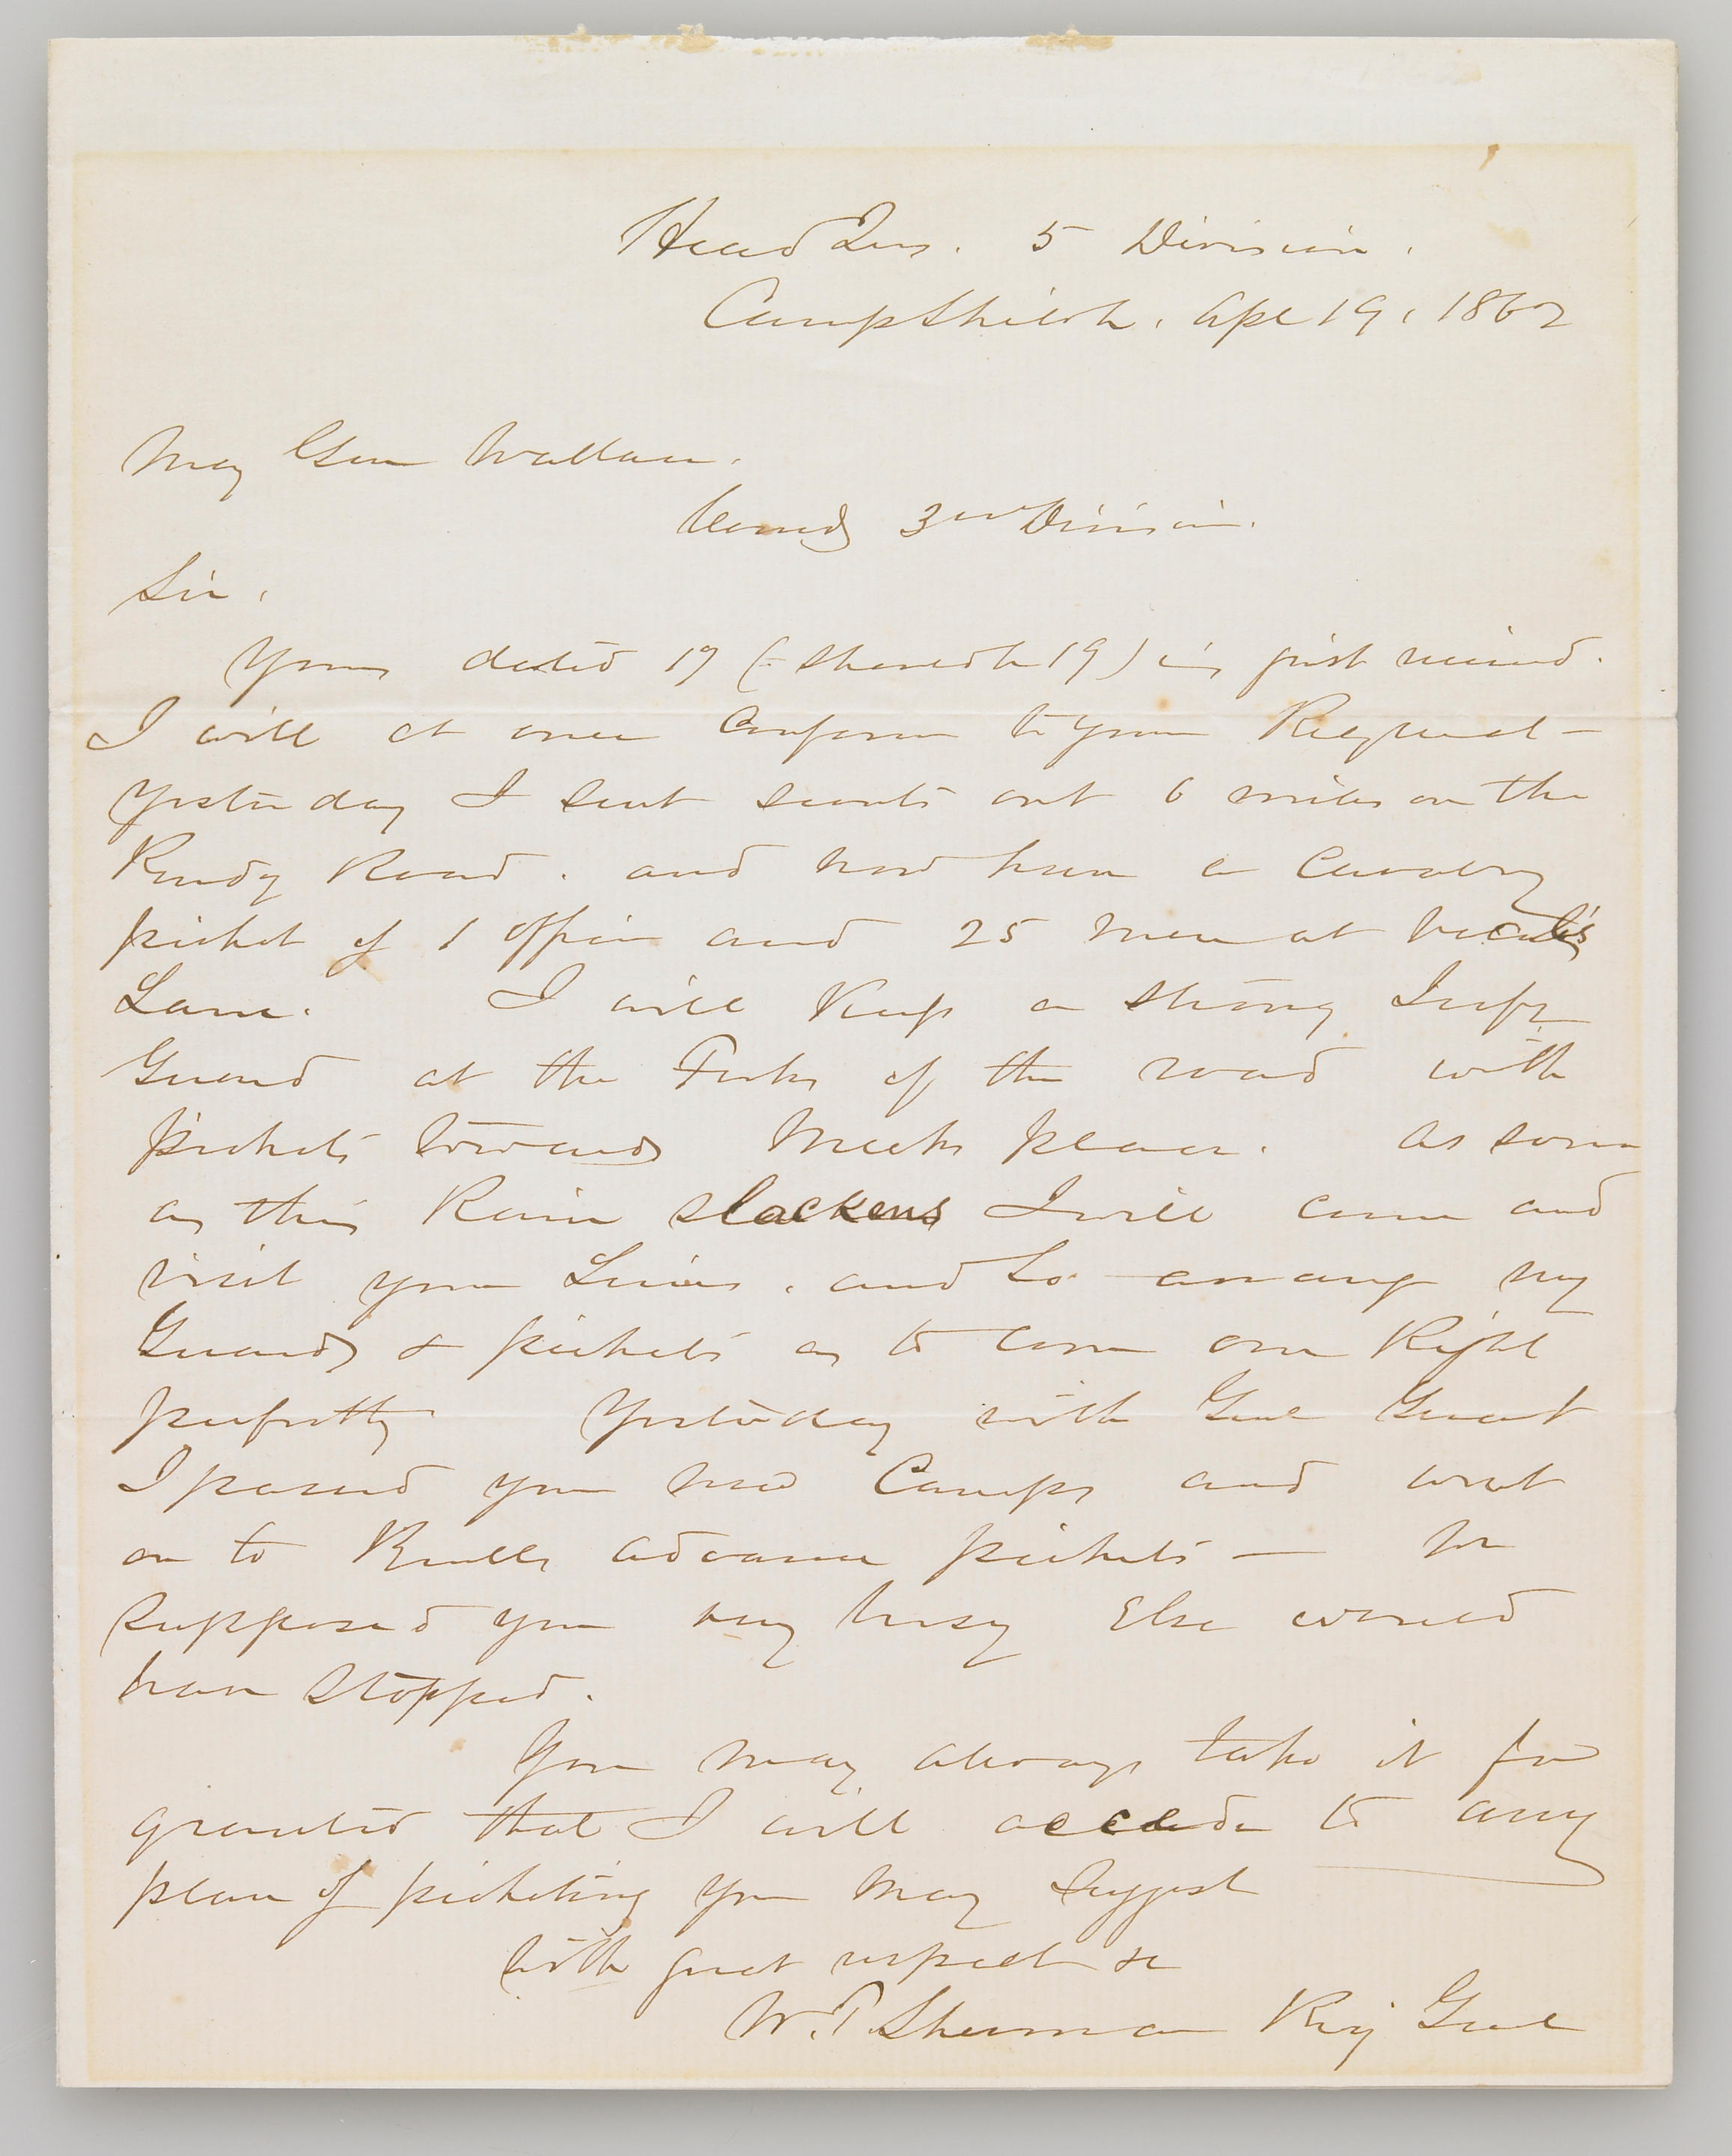 Head Qrs. 5 Division.
Camp Shiloh, Apl 19, 1862
Maj Gen Wallace.
Comdg 3rd Division.
Sir,
Yours dated 17 (should be 19) is just received.
I will at once conform to your Request —
Yesterday I sent scouts out 6 miles on the
Purdy Road. and now have a Cavalry
picket of 1 officer and 25 men at
Lane. I will Keep a strong Infy
Guard at the Forks of the road with
pickets towards Meeks place. As soon
as this Rain slackens I will come and
visit your Lines, and so arrange my
Guards & pickets as to cover our Right
perfectly Yesterday with Genl Grant
I passed your new Camps and went
on to Buells advance pickets — We
supposed you very busy Else would
have stopped.
You may always take it for
granted that I will accede to any
plan of picketing you may suggest
with great respect &c
W. T. Sherman Brig Genl